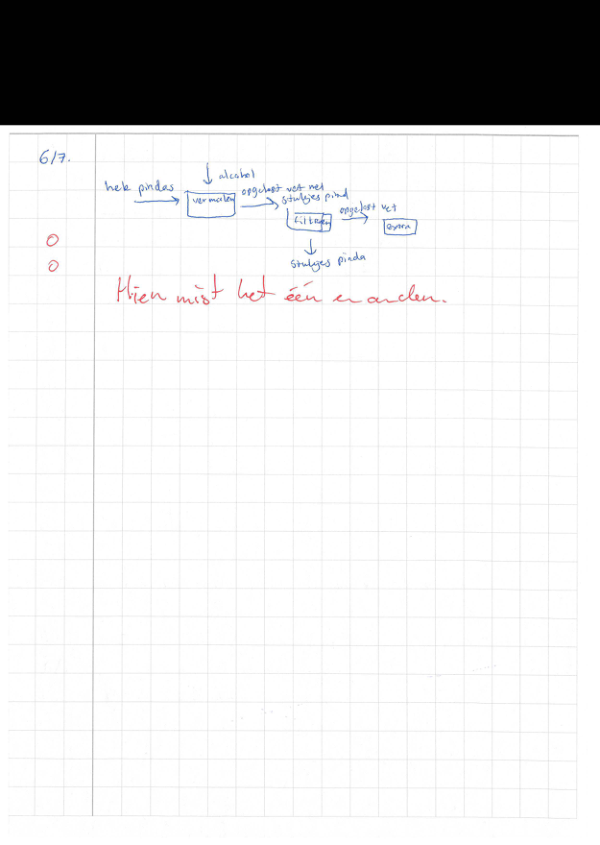 6/7.
alcohol
hele pindas
vermalen
opgelost vet met
stukjes pind
filtreren
opgelost vet
extra
stukjes pinda
0
0
Hier mist het één en ander.